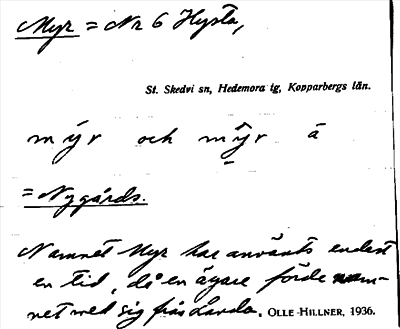 Myr = Nr 6 Hysta,
St. Skedvi sn, Hedemora tg, Kopparbergs län.
mýr och mŷr á
= Nygårds.
Namnet Myr har använts endast
en tid, då en ägare förde nam-
net med sig från Lårda. OLLE HILLNER, 1936.